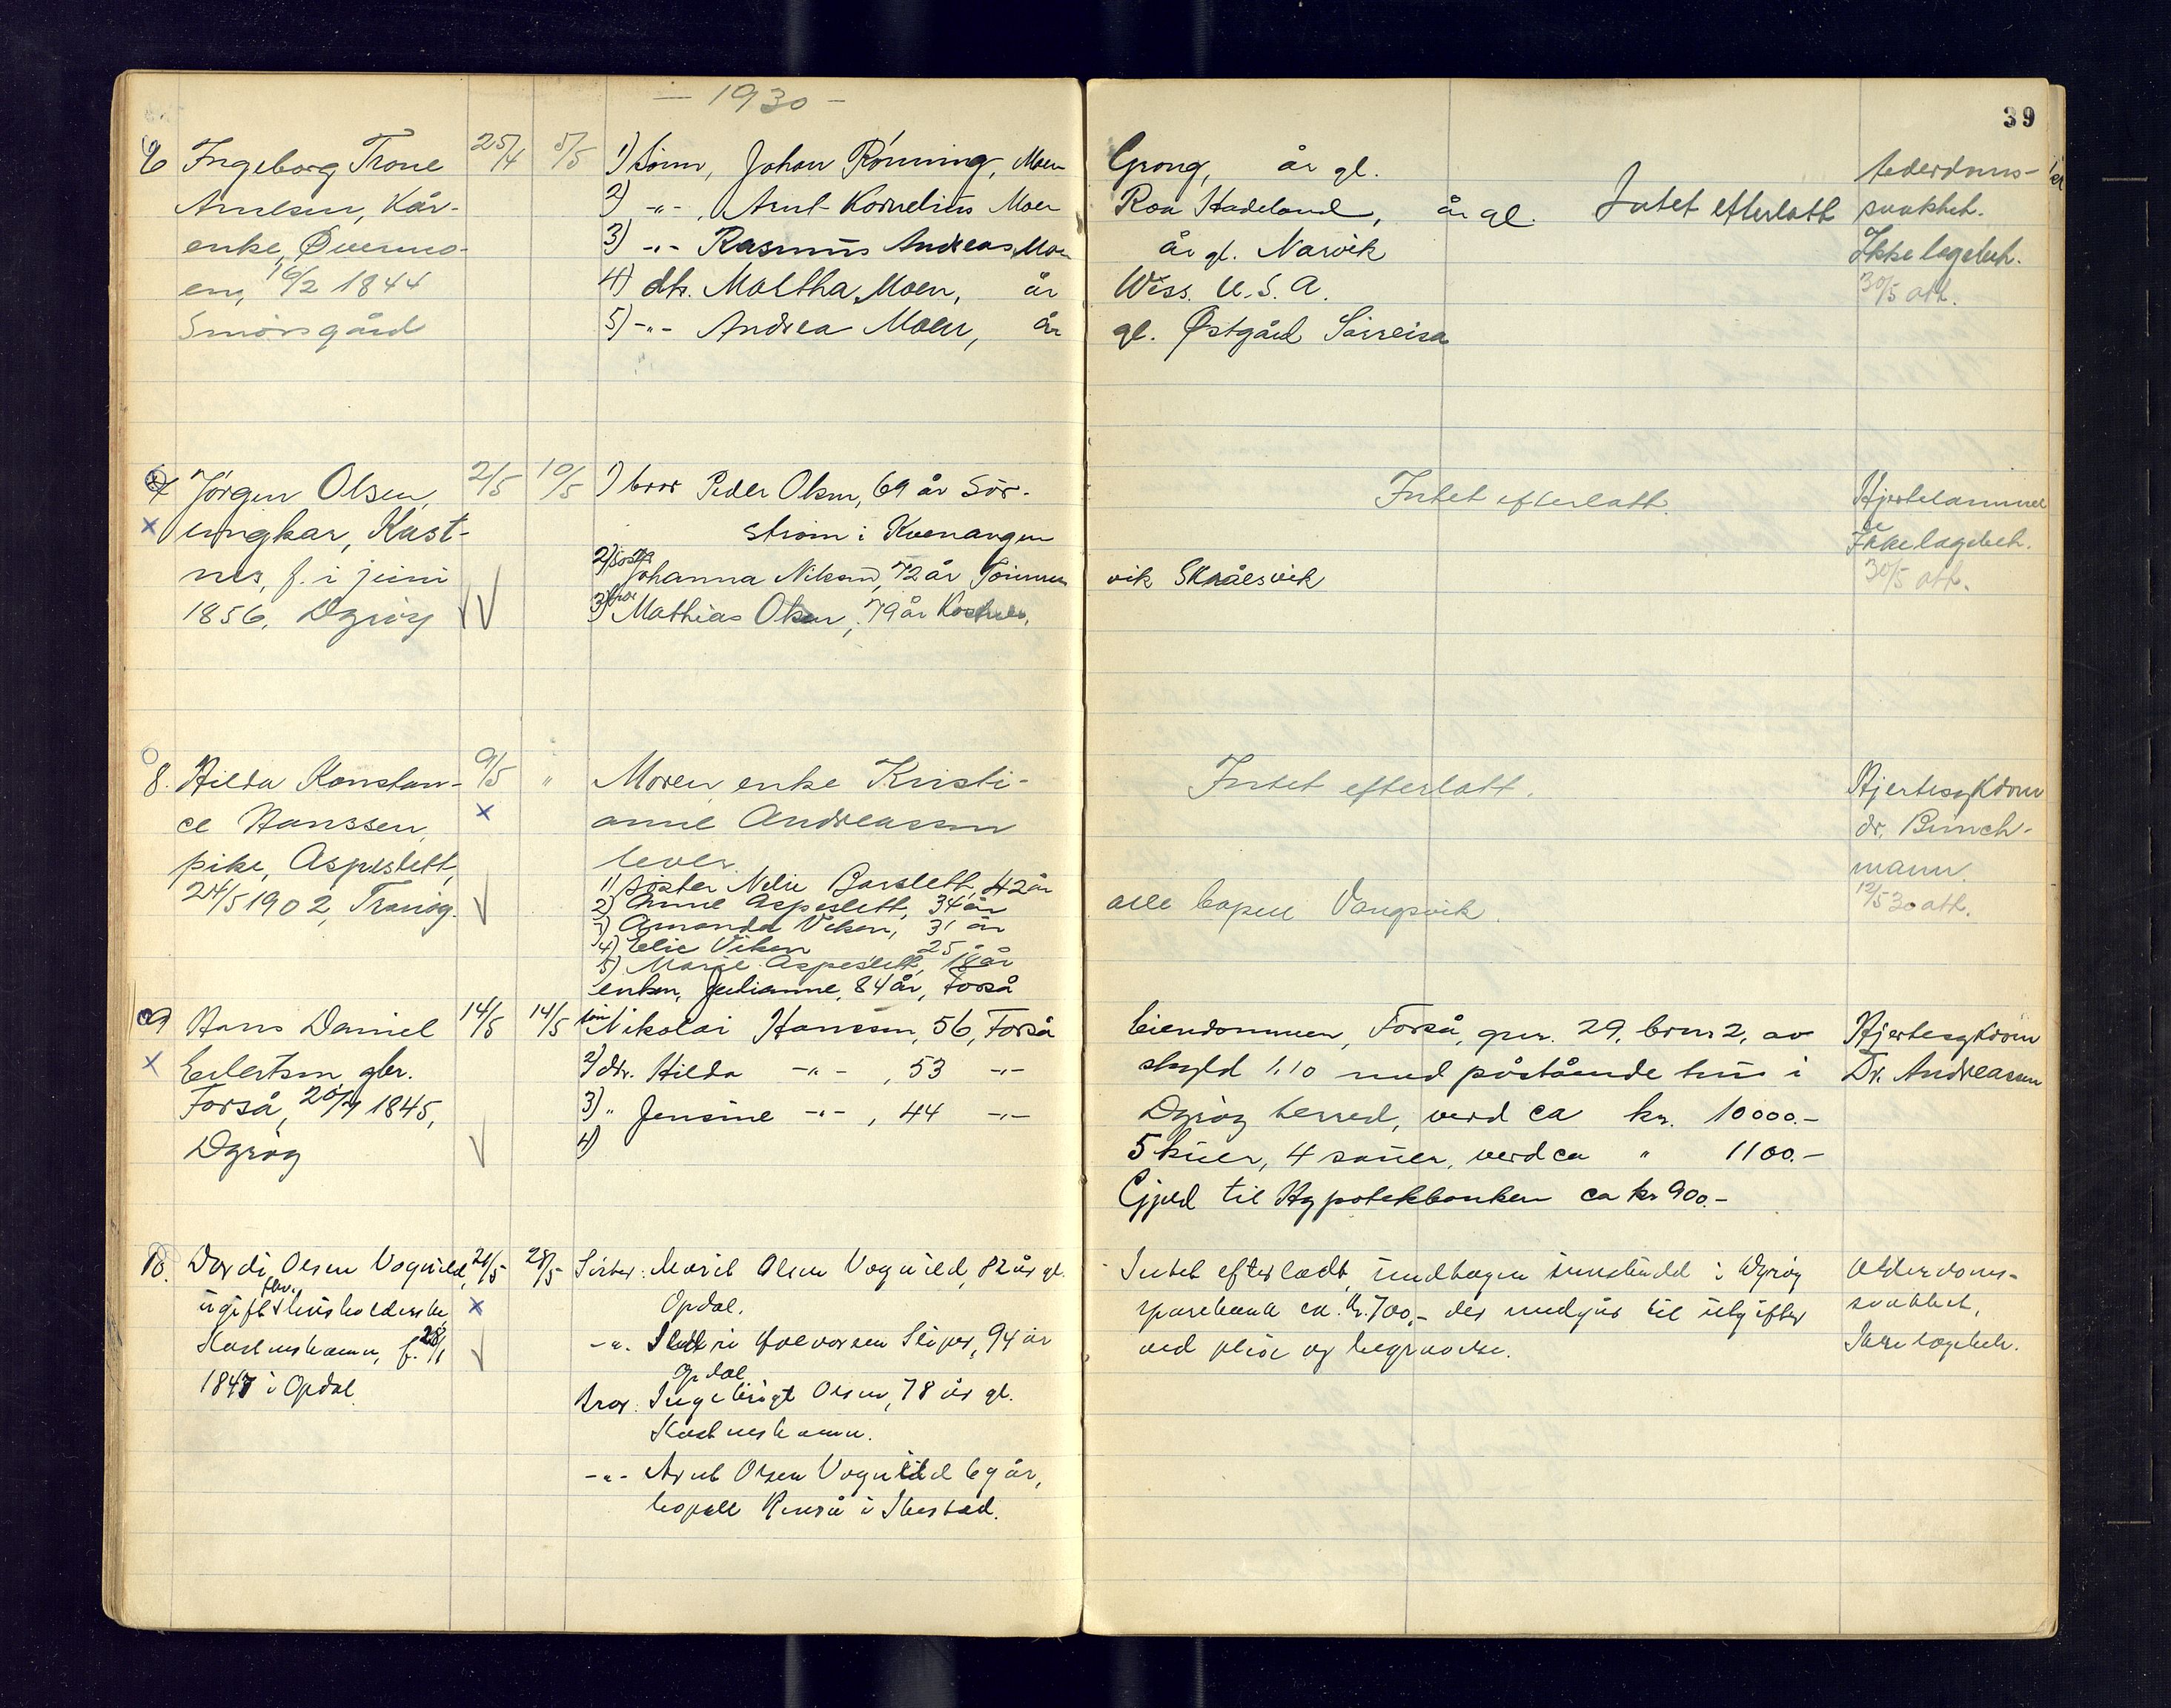 - 1930 -
39
6 Ingeborg Trone 25/4 5/5 1) sönn, Johan Rönning, Moen Grong, år gl. Alderdoms-
Arnelsen, Kår- 2) -"- , Arnt Kornelius Moen Roa Hadeland, år gl. Intet efterlatt svakhet.
enke, Övermo- 3) -"- Rasmus Andreas Moen år gl. Narvik Ikke legebeh.
en, 16/2 1844 4) dtr. Maltha Moen, år Wiss. U.S.A. 30/5 att.
Smörsgård 5) -"- Andrea Moen, år gl. Østgård Sörreisa
7 Jörgen Olsen, 2/5 10/5 1) bror Peder Olsen, 69 år Sör- Intet efterlatt.
x ungkar, Kast- ström i Kvenangen Ikke legebeh.
nes, f. i juni 2) söster Johanna Nilsen, 72 år vik Skrålsvik 30/5 att.
1856, Dyröy 3) bror Mathias Olsen, 79 år Kastnes.
8. Hilda Konstan- 9/5 " Moren enke Kristi- Intet efterlatt. Hjertesykdom
ce Hanssen, x anne Andreassen dr. Bunch-
pike, Aspeslett, lever. mann.
24/5 1902, Tranöy. 1) söster Nelie Barslett, 42 år 12/5 30 att.
2) Anne Aspeslett, 34 år alle bopell Vangsvik.
3) Amanda Viken, 31 år
4) Elie Viken 25 år
5) Marie Aspeslett, 18 år
enken, Julianne, 84 år, Forså
9 Hans Daniel 14/5 14/5 sön Nikolai Hansen, 56, Forså Eiendommen, Forså, gnr. 29, brnr 2, av Hjertesykdom
x Eilertsen gbr. 2) dtr. Hilda -"- , 53 -"- skyld 1,10 med påstående hus i Dr. Andreassen
Forså, 20/4 1845, 3) " Jensine -"- , 44 -"- Dyröy herred, verd ca kr. 10000.-
Dyröy 4) 5 kuer, 4 sauer, verd ca " 1100.-
Gjeld til Hypotekbanken ca kr 900.-
10. Dordi Olsen Vognild, 21/5 28/5 Söster: Marit Olsen Vognild, 82 år gl. Intet efterladt, undtagen innskudd i Dyröy Alderdoms-
ugift fhv. husholderske, x Opdal. sparebank ca. kr. 700,- der medgår til utgifter svakhet,
Kastneshamn, f. 28/1 -"- Halvorsen Sliper, 94 år ved pleie og begravelse. Ikke legebeh.
1847 i Opdal. Opdal
Bror: Ingebrigt Olsen, 78 år gl.
Kastneshamn.
-"- Arnt Olsen Vognild 69 år,
bopell Renså i Ibestad.